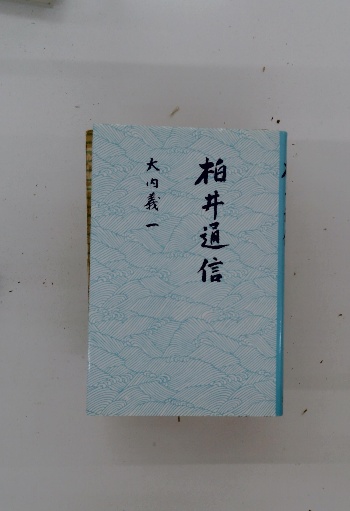 柏井通信
大内義一